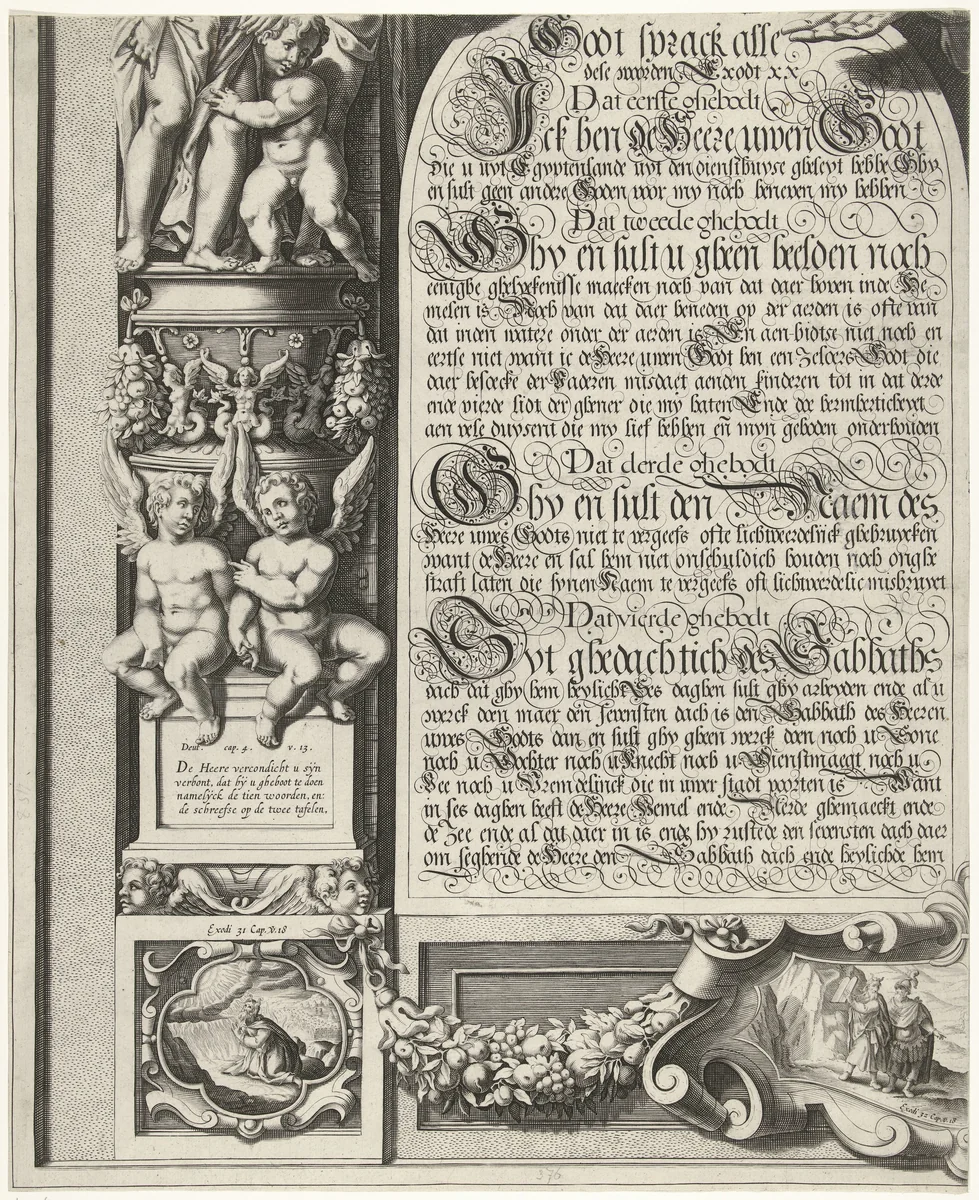 Godt sprack alle
dese worden Exodi xx
Dat eerste ghebodt
Ick ben de Heere uwen Godt
die u uyt Egyptenlande uyt den diensthuyse gheleyt hebbe Ghy
en sult geen andere Goden voor my noch beneven my hebben
Dat tweede ghebodt
Ghy en sult u gheen beelden noch
eenighe ghelyckenisse maecken noch van dat daer boven inde He
melen is Noch van dat daer beneden op der aerden is ofte van
dat inden watere onder der aerden is En aen bidtse niet noch en
eertse niet want ic de Heere uwen Godt ben een Zeloers Godt die
daer besoecke der Vaderen misdaet aenden kinderen tot in dat derde
ende vierde lidt der ghener die my haten Ende doe bermherticheyt
aen vele duysent die my lief hebben en̄ myn geboden onderhouden
Dat derde ghebodt
Ghy en sult den Naem des
Heere uwes Godts niet te vergeefs ofte lichtveerdelijck ghebruycken
want de Heere en sal hem niet onschuldich houden noch onghe
straft laten die synen Naem te vergeefs oft lichtverdelic misbruyct
Dat vierde ghebodt
Syt ghedachtich des Sabbaths
dach dat ghy hem heylicht Ses daghen sult ghy arbeyden ende al u
werck doen maer den sevensten dach is den Sabbath des Heeren
uwes Godts dan en sult ghy gheen werck doen noch u Sone
noch u Dochter noch u Knecht noch u Dienstmaegt noch u
Vee noch u Vremdelijnck die in uwer stadt poorten is Want
in ses daghen heeft de Heere Hemel ende Aerde ghemaeckt ende
de Zee ende al dat daer in is ende hy rustede den sevensten dach daer
om seghende de Heere den Sabbath dach ende heylichde hem
Deut. cap. 4. v. 13.
De Heere vercondicht u sijn
verbont, dat hy u gheboot te doen
namelijck de tien woorden, en:
de schreefse op de twee tafelen.
Exodi 31 Cap. V. 18
Exodi 32 Cap. v. 18
376